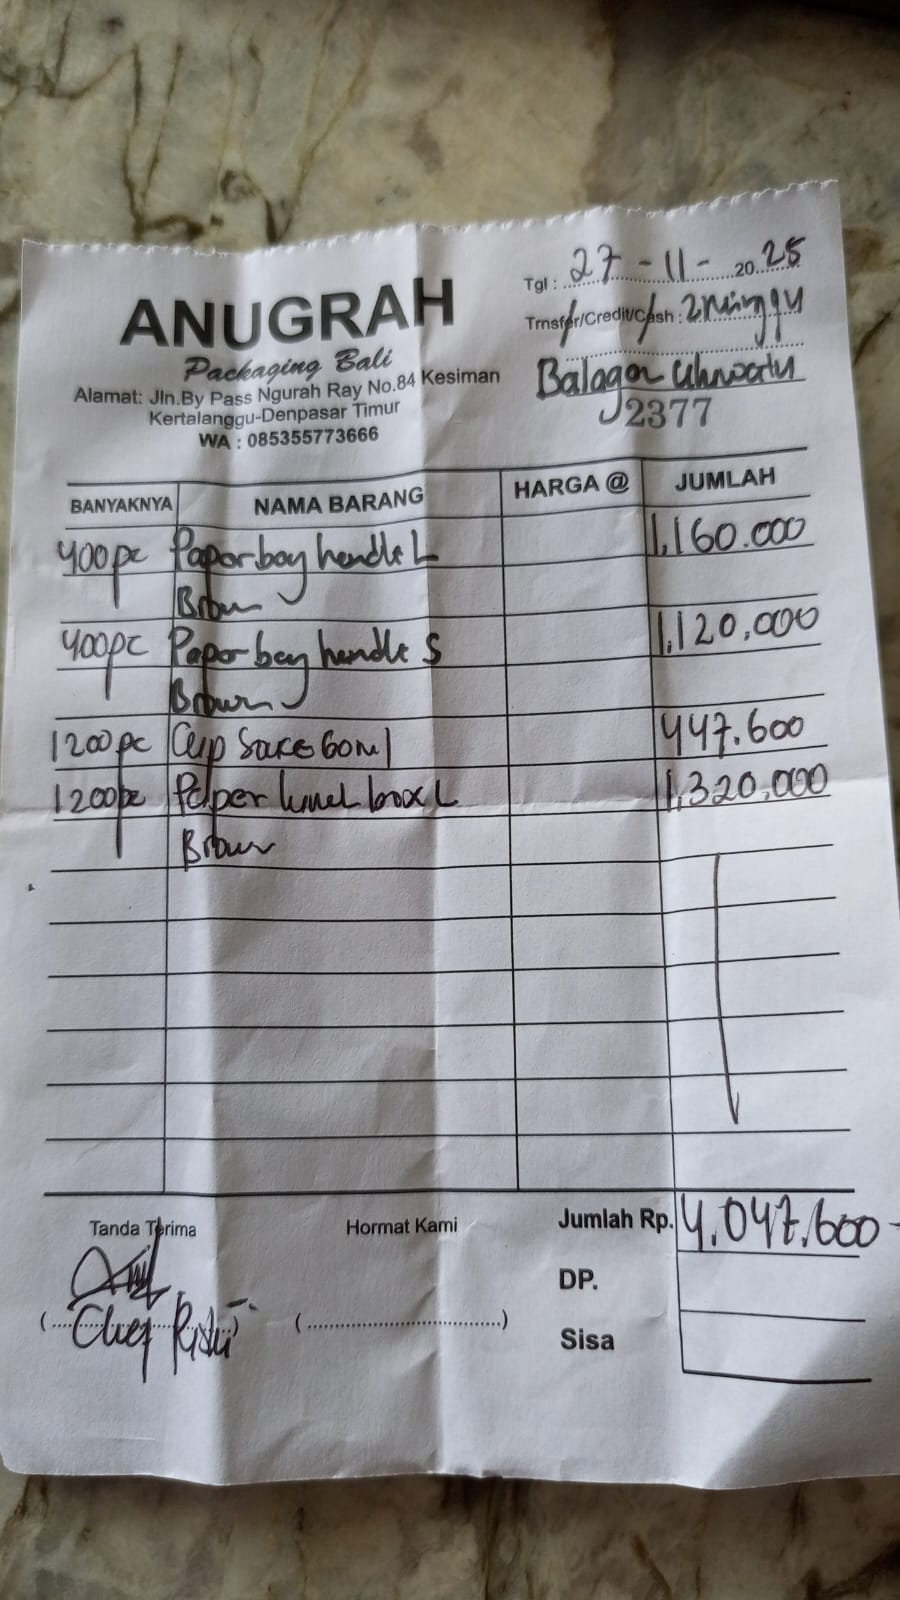 ANUGRAH
Packaging Bali
Alamat: Jln.By Pass Ngurah Ray No.84 Kesiman
Kertalanggu-Denpasar Timur
WA : 085355773666
Tgl : 27 - 11 - 2025
Trnsfer/Credit/Cash : 2 minggu
Balagan
2377
BANYAKNYA NAMA BARANG HARGA @ JUMLAH
400pc Paper bag handle L 1,160.000
Brown
400pc Paper bag handle S 1,120,000
Brown
1200pc Cup Sauce 60ml 447.600
1200pc Paper lunch box L 1,320,000
Brown
Tanda Terima Hormat Kami Jumlah Rp. 4.047.600
DP.
Chef (..............................)
Sisa